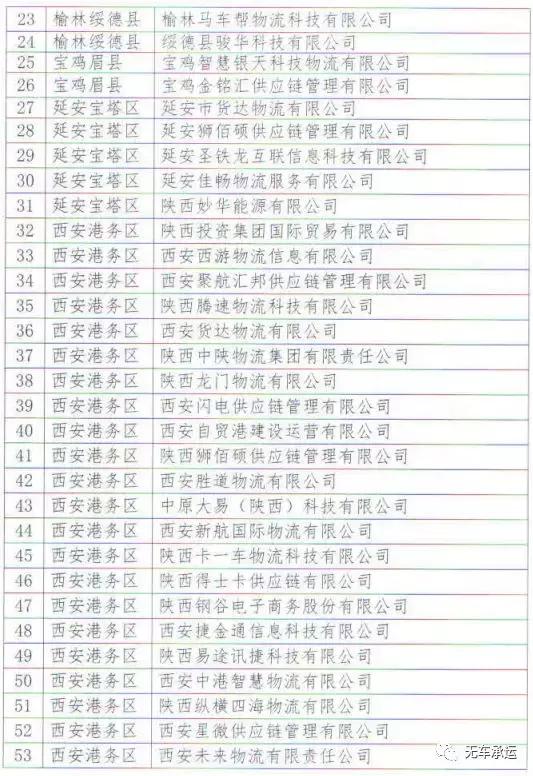 23 榆林绥德县 榆林马车帮物流科技有限公司
24 榆林绥德县 绥德县骏华科技有限公司
25 宝鸡眉县 宝鸡智慧银天科技物流有限公司
26 宝鸡眉县 宝鸡金铭汇供应链管理有限公司
27 延安宝塔区 延安市货达物流有限公司
28 延安宝塔区 延安狮佰硕供应链管理有限公司
29 延安宝塔区 延安圣铁龙互联信息科技有限公司
30 延安宝塔区 延安佳畅物流服务有限公司
31 延安宝塔区 陕西妙华能源有限公司
32 西安港务区 陕西投资集团国际贸易有限公司
33 西安港务区 西安西游物流信息有限公司
34 西安港务区 西安聚航汇邦供应链管理有限公司
35 西安港务区 陕西腾速物流科技有限公司
36 西安港务区 西安货达物流有限公司
37 西安港务区 陕西中陕物流集团有限责任公司
38 西安港务区 陕西龙门物流有限公司
39 西安港务区 西安闪电供应链管理有限公司
40 西安港务区 西安自贸港建设运营有限公司
41 西安港务区 陕西狮佰硕供应链管理有限公司
42 西安港务区 西安胜道物流有限公司
43 西安港务区 中原大易（陕西）科技有限公司
44 西安港务区 西安新航国际物流有限公司
45 西安港务区 陕西卡一车物流科技有限公司
46 西安港务区 陕西得士卡供应链有限公司
47 西安港务区 陕西钢谷电子商务股份有限公司
48 西安港务区 西安捷金通信息科技有限公司
49 西安港务区 陕西易途讯捷科技有限公司
50 西安港务区 西安中港智慧物流有限公司
51 西安港务区 陕西纵横四海物流有限公司
52 西安港务区 西安星微供应链管理有限公司
53 西安港务区 西安未来物流有限责任公司
无车承运